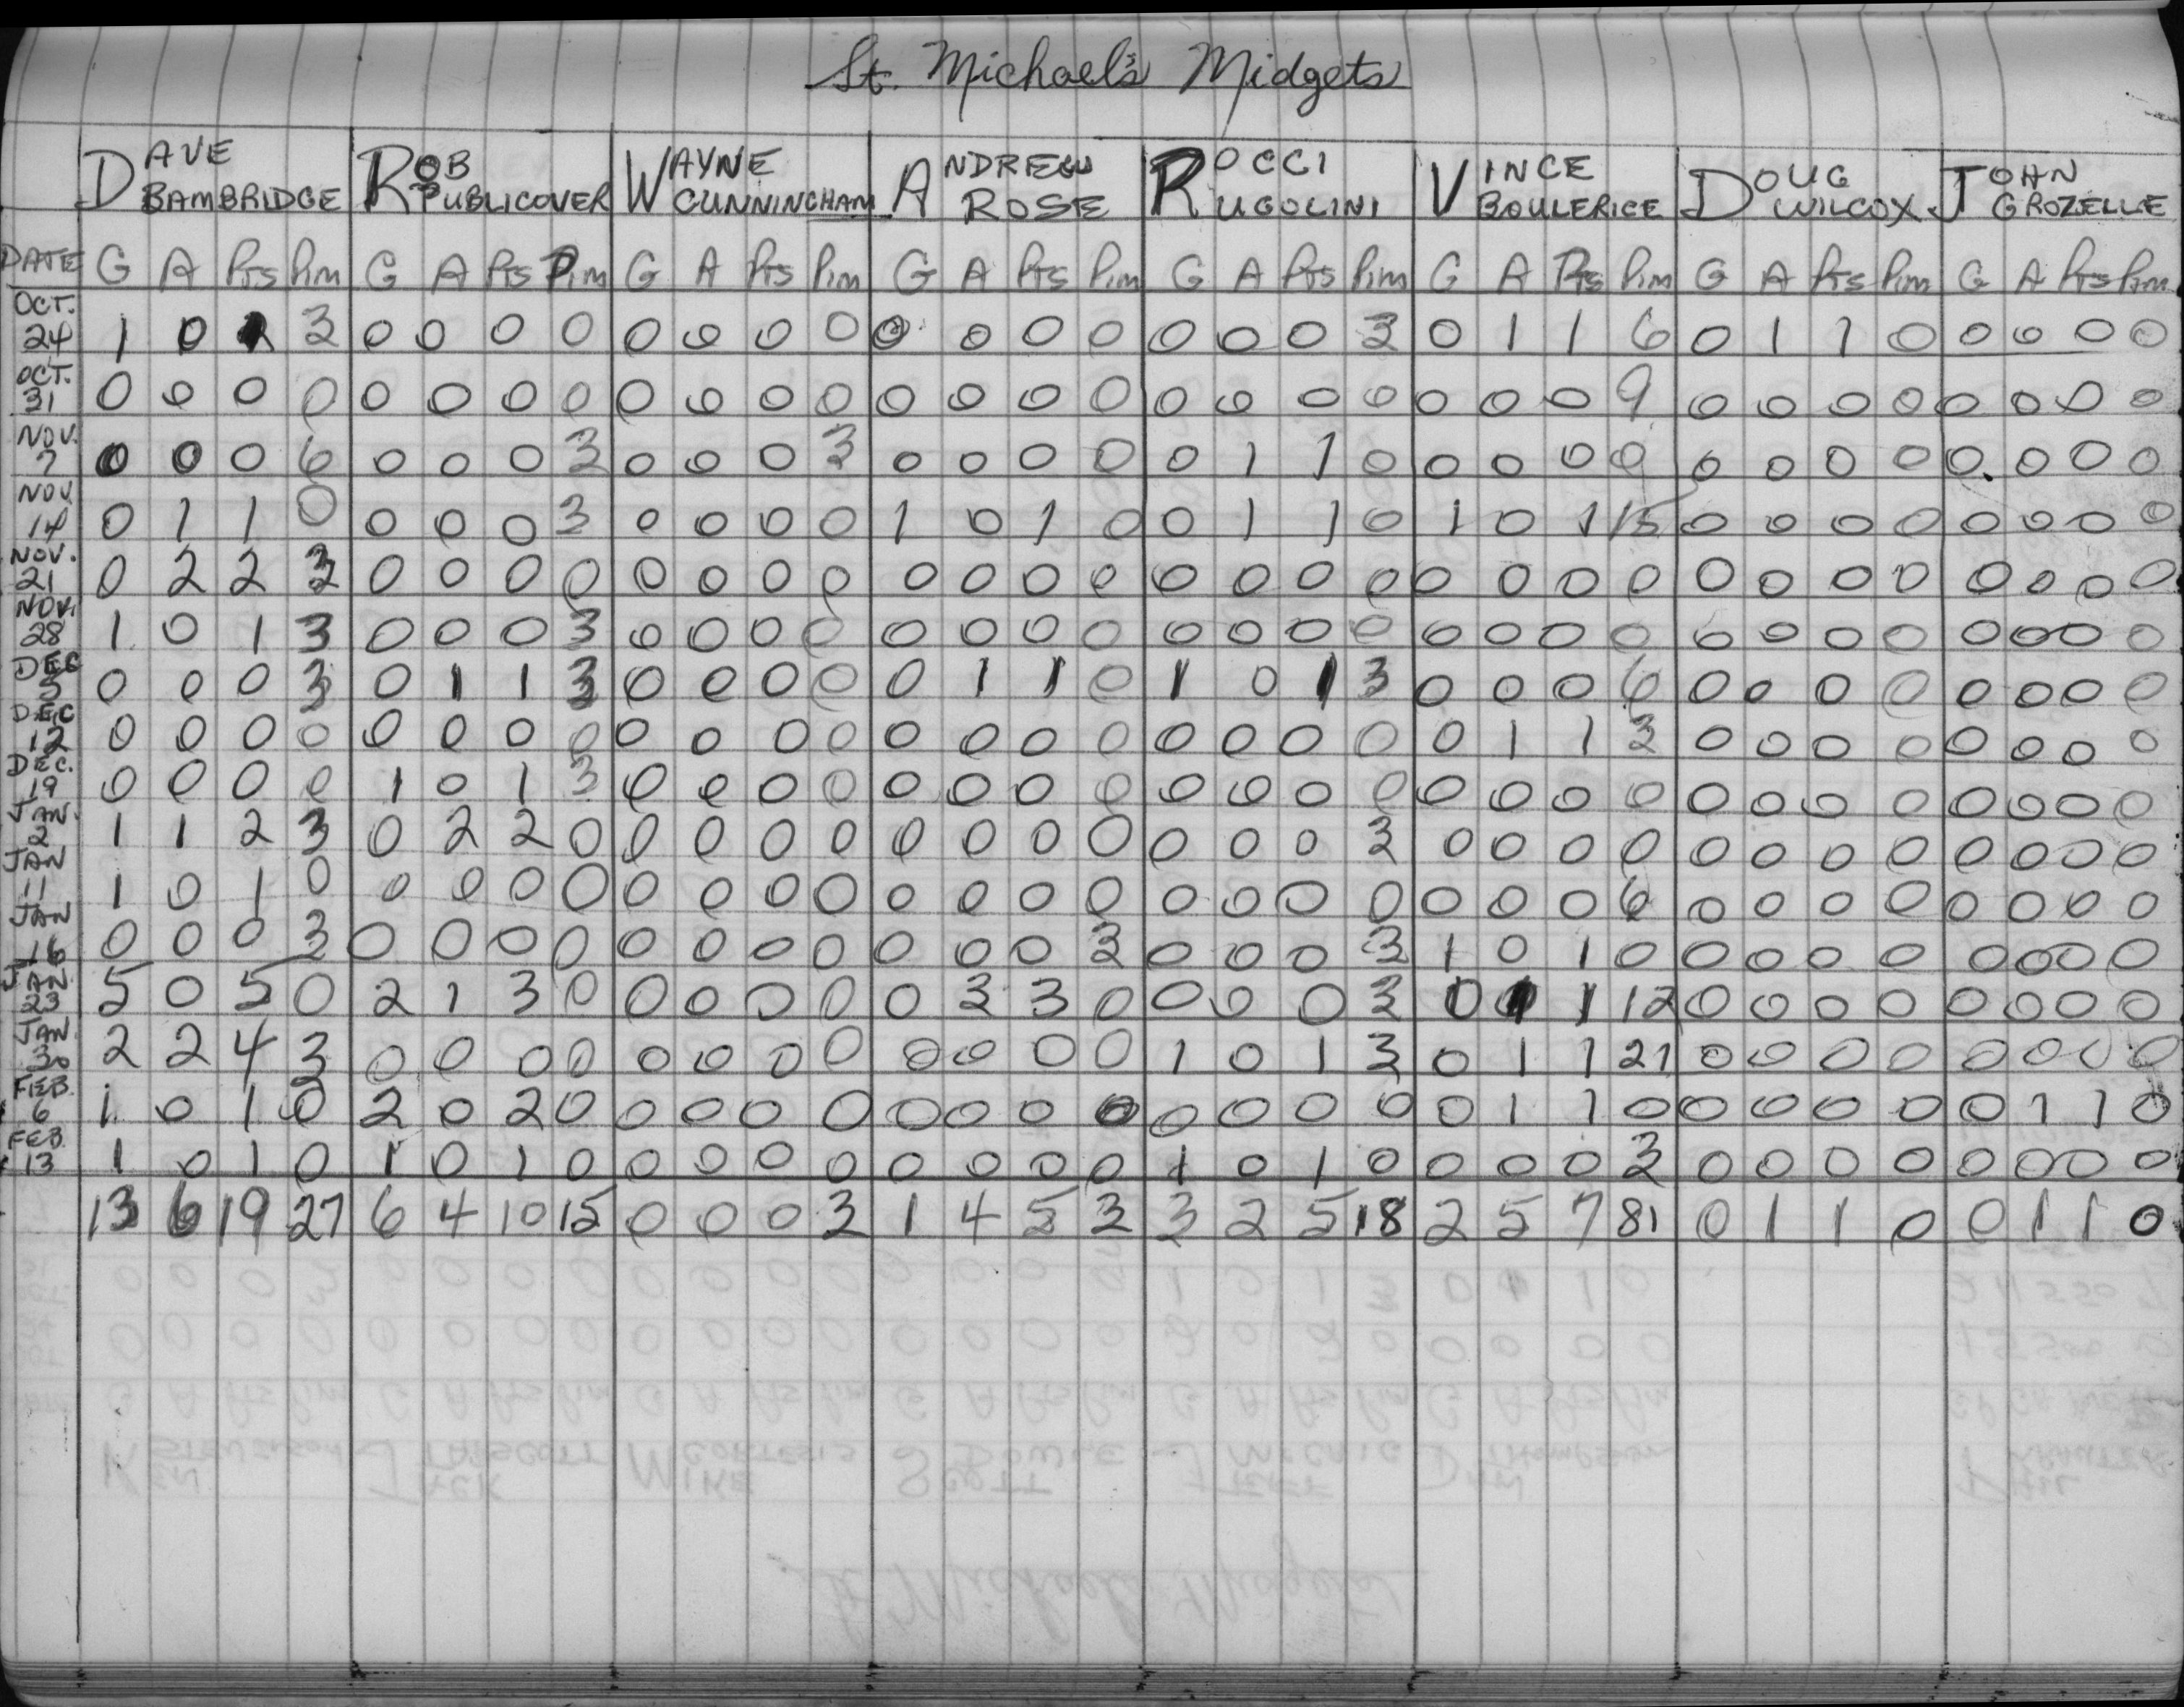 St. Michael's Midgets
DAVE BAMBRIDGE ROB PUBLICOVER WAYNE CUNNINGHAM ANDREW ROSE ROCCI RUGOLINI VINCE BOULERICE DOUG WILCOX JOHN GROZELLE
DATE G A Pts Pim G A Pts Pim G A Pts Pim G A Pts Pim G A Pts Pim G A Pts Pim G A Pts Pim G A Pts Pim
OCT. 24 1 0 1 3 0 0 0 0 0 0 0 0 0 0 0 0 0 0 0 3 0 1 1 6 0 1 1 0 0 0 0 0
OCT. 31 0 0 0 0 0 0 0 0 0 0 0 0 0 0 0 0 0 0 0 0 0 0 0 9 0 0 0 0 0 0 0 0
NOV. 7 0 0 0 6 0 0 0 3 0 0 0 3 0 0 0 0 0 1 1 0 0 0 0 0 0 0 0 0 0 0 0 0
NOV. 14 0 1 1 0 0 0 0 3 0 0 0 0 1 0 1 0 0 1 1 0 1 0 1 15 0 0 0 0 0 0 0 0
NOV. 21 0 2 2 3 0 0 0 0 0 0 0 0 0 0 0 0 0 0 0 0 0 0 0 0 0 0 0 0 0 0 0 0
NOV. 28 1 0 1 3 0 0 0 3 0 0 0 0 0 0 0 0 0 0 0 0 0 0 0 0 0 0 0 0 0 0 0 0
DEC 5 0 0 0 3 0 1 1 3 0 0 0 0 0 1 1 0 1 0 1 3 0 0 0 6 0 0 0 0 0 0 0 0
DEC 12 0 0 0 0 0 0 0 0 0 0 0 0 0 0 0 0 0 0 0 0 0 1 1 3 0 0 0 0 0 0 0 0
DEC. 19 0 0 0 0 1 0 1 3 0 0 0 0 0 0 0 0 0 0 0 0 0 0 0 0 0 0 0 0 0 0 0 0
JAN. 2 1 1 2 3 0 2 2 0 0 0 0 0 0 0 0 0 0 0 0 3 0 0 0 0 0 0 0 0 0 0 0 0
JAN 11 1 0 1 0 0 0 0 0 0 0 0 0 0 0 0 0 0 0 0 0 0 0 0 6 0 0 0 0 0 0 0 0
JAN 16 0 0 0 3 0 0 0 0 0 0 0 0 0 0 0 3 0 0 0 3 1 0 1 0 0 0 0 0 0 0 0 0
JAN. 23 5 0 5 0 2 1 3 0 0 0 0 0 0 3 3 0 0 0 0 3 0 1 1 12 0 0 0 0 0 0 0 0
JAN. 30 2 2 4 3 0 0 0 0 0 0 0 0 0 0 0 0 1 0 1 3 0 1 1 21 0 0 0 0 0 0 0 0
FEB. 6 1 0 1 0 2 0 2 0 0 0 0 0 0 0 0 0 0 0 0 0 0 1 1 0 0 0 0 0 0 1 1 0
FEB. 13 1 0 1 0 1 0 1 0 0 0 0 0 0 0 0 0 1 0 1 0 0 0 0 3 0 0 0 0 0 0 0 0
13 6 19 27 6 4 10 15 0 0 0 3 1 4 5 3 3 2 5 18 2 5 7 81 0 1 1 0 0 1 1 0